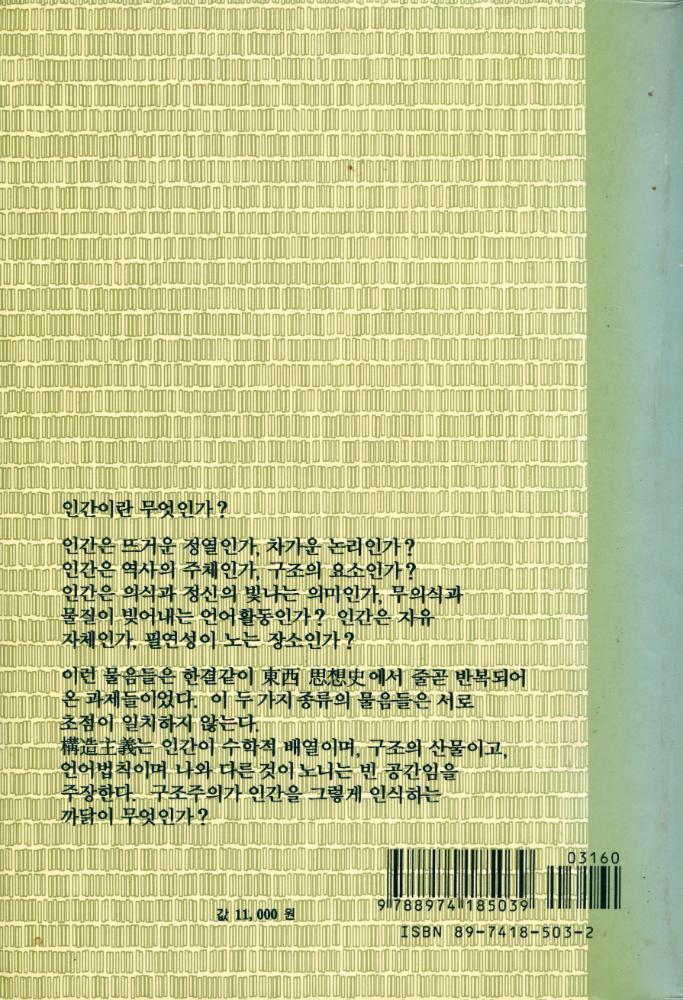 인간이란 무엇인가?
인간은 뜨거운 정열인가, 차가운 논리인가?
인간은 역사의 주체인가, 구조의 요소인가?
인간은 의식과 정신의 빛나는 의미인가, 무의식과
물질이 빚어내는 언어활동인가? 인간은 자유
자체인가, 필연성이 노는 장소인가?
이런 물음들은 한결같이 東西 思想史에서 줄곧 반복되어
온 과제들이었다. 이 두 가지 종류의 물음들은 서로
초점이 일치하지 않는다.
構造主義는 인간이 수학적 배열이며, 구조의 산물이고,
언어법칙이며 나와 다른 것이 노니는 빈 공간임을
주장한다. 구조주의가 인간을 그렇게 인식하는
까닭이 무엇인가?
03160
9 788974 185039
값 11,000 원
ISBN 89-7418-503-2